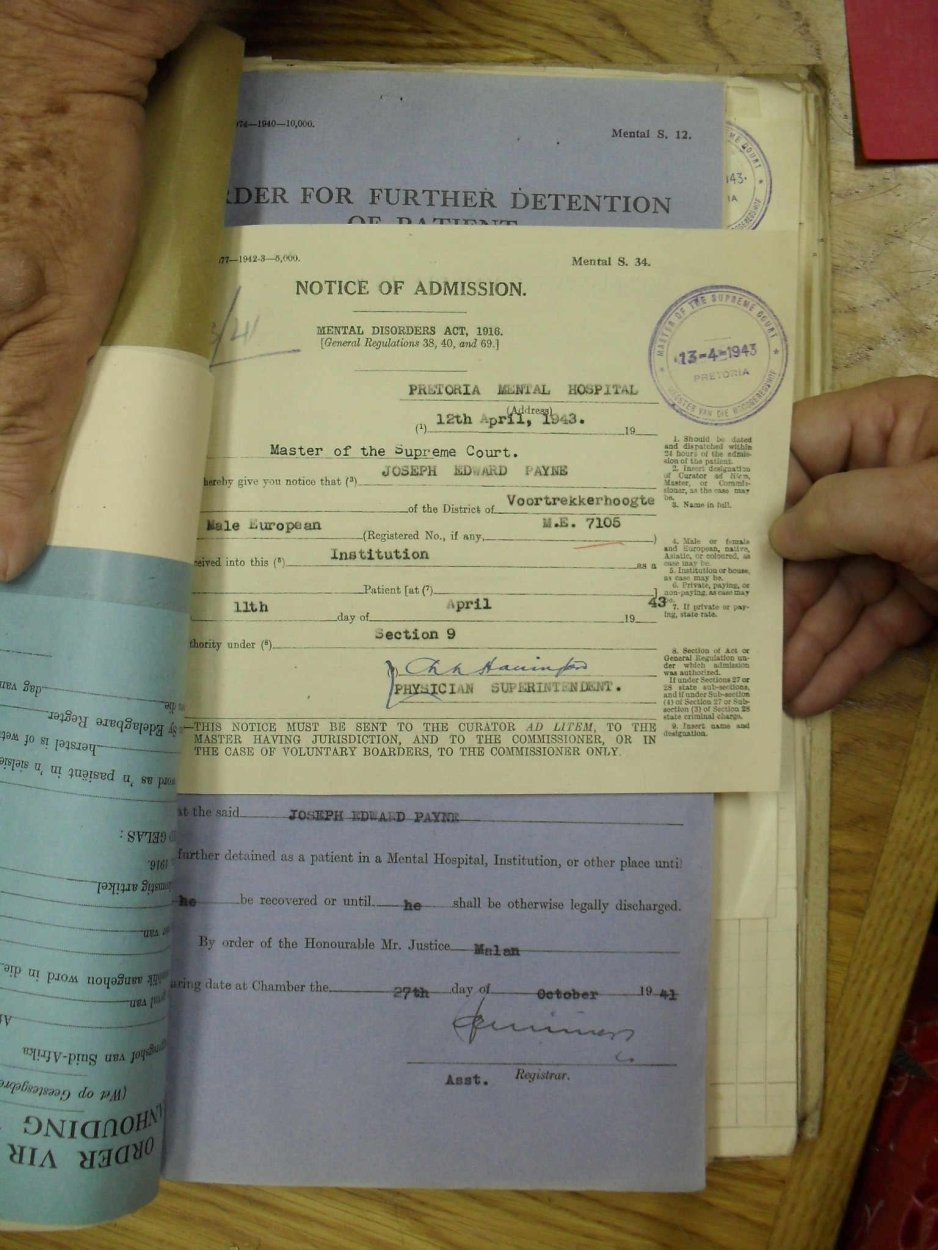 74—1940—10,000.
Mental S. 12.
RDER FOR FURTHER DETENTION
OF PATIENT
77—1942-3—5,000.
Mental S. 34.
NOTICE OF ADMISSION.
MENTAL DISORDERS ACT, 1916.
[General Regulations 38, 40, and 69.]
MASTER OF THE SUPREME COURT
13-4-1943
PRETORIA
PRETORIA MENTAL HOSPITAL
(Address)
(1) 12th April, 1943. 19
Master of the Supreme Court.
hereby give you notice that (3) JOSEPH EDWARD PAYNE
of the District of Voortrekkerhoogte
Male European (Registered No., if any, M.E. 7105 )
ceived into this (5) Institution as a
Patient [at (7) ]
11th day of April 1943
thority under (8) Section 9
PHYSICIAN SUPERINTENDENT.
—THIS NOTICE MUST BE SENT TO THE CURATOR AD LITEM, TO THE
MASTER HAVING JURISDICTION, AND TO THE COMMISSIONER, OR IN
THE CASE OF VOLUNTARY BOARDERS, TO THE COMMISSIONER ONLY.
1. Should be dated
and dispatched within
24 hours of the admis-
sion of the patient.
2. Insert designation
of Curator ad litem,
Master, or Commis-
sioner, as the case may
be.
3. Name in full.
4. Male or female
and European, native,
Asiatic, or coloured, as
case may be.
5. Institution or house,
as case may be.
6. Private, paying, or
non-paying, as case may
be.
7. If private or pay-
ing, state rate.
8. Section of Act or
General Regulation un-
der which admission
was authorized.
If under Sections 27 or
28 state sub-sections,
and if under Sub-section
(4) of Section 27 or Sub-
section (3) of Section 28
state criminal charge.
9. Insert name and
designation.
at the said JOSEPH EDWARD PAYNE
further detained as a patient in a Mental Hospital, Institution, or other place until
he be recovered or until he shall be otherwise legally discharged.
By order of the Honourable Mr. Justice Malan
aring date at Chamber the 27th day of October 1941
Asst. Registrar.
ORDER VIR
ANHOUDING
(Wet op Geestesgebre
van Suid-Afrika
val van
aangehou word in die
or van
artikel
1916.
GELAS:
word as 'n pasiënt in 'n
herstel is of wet
Sy Edelagbare Regter
dag van